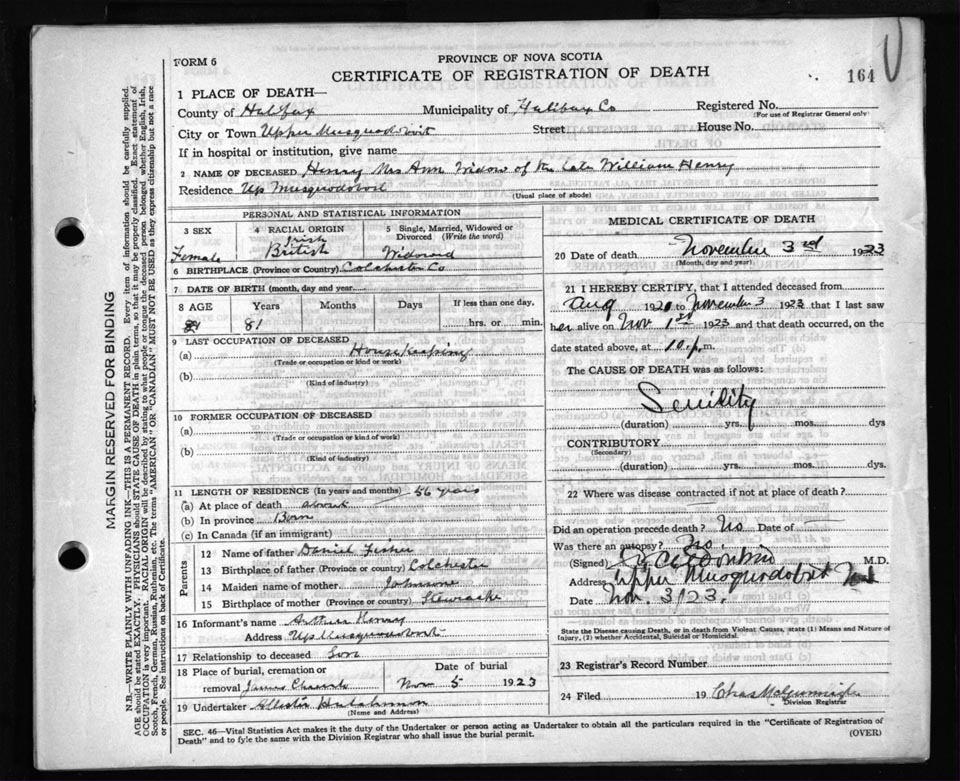 FORM 6
PROVINCE OF NOVA SCOTIA
CERTIFICATE OF REGISTRATION OF DEATH
164
1 PLACE OF DEATH—
County of Halifax Municipality of Halifax Co Registered No.
(For use of Registrar General only)
City or Town Upper Musquodoboit Street House No.
If in hospital or institution, give name
2 NAME OF DECEASED Henry Mrs Ann Widow of the late William Henry
Residence Up Musquodoboit
(Usual place of abode)
PERSONAL AND STATISTICAL INFORMATION
3 SEX
Female
4 RACIAL ORIGIN
Irish
British
5 Single, Married, Widowed or Divorced (Write the word)
Widowed
6 BIRTHPLACE (Province or Country) Colchester Co
7 DATE OF BIRTH (month, day and year)
8 AGE Years Months Days If less than one day,
81 hrs. or min.
9 LAST OCCUPATION OF DECEASED
(a) Housekeeping
(Trade or occupation or kind or work)
(b)
(Kind of industry)
10 FORMER OCCUPATION OF DECEASED
(a)
(Trade or occupation or kind of work)
(b)
(Kind of industry)
11 LENGTH OF RESIDENCE (In years and months) 56 years
(a) At place of death about
(b) In province Born
(c) In Canada (if an immigrant)
Parents
12 Name of father Daniel Fisher
13 Birthplace of father (Province or country) Colchester
14 Maiden name of mother Johnson
15 Birthplace of mother (Province or country) Stewiacke
16 Informant's name Arthur Henry
Address Up Musquodoboit
17 Relationship to deceased Son
18 Place of burial, cremation or removal Date of burial
Nov 5 1923
19 Undertaker
(Name and Address)
MEDICAL CERTIFICATE OF DEATH
20 Date of death November 3rd 1923
(Month, day and year)
21 I HEREBY CERTIFY, that I attended deceased from
Aug 1920 to November 3 1923 that I last saw
her alive on Nov 1st 1923 and that death occurred, on
date stated above, at 10 p.m.
The CAUSE OF DEATH was as follows:
Senility
(duration) yrs. mos. dys
CONTRIBUTORY
(Secondary)
(duration) yrs. mos. dys.
22 Where was disease contracted if not at place of death?
Did an operation precede death? No Date of
Was there an autopsy? No.
(Signed) M.D.
Address Upper Musquodoboit
Date Nov. 3/23.
State the Disease causing Death, or in death from Violent Causes, state (1) Means and Nature of Injury, (2) whether Accidental, Suicidal or Homicidal.
23 Registrar's Record Number
24 Filed 19 Chas
Division Registrar
SEC. 46—Vital Statistics Act makes it the duty of the Undertaker or person acting as Undertaker to obtain all the particulars required in the "Certificate of Registration of
Death" and to fyle the same with the Division Registrar who shall issue the burial permit. (OVER)
MARGIN RESERVED FOR BINDING
N.B.—WRITE PLAINLY WITH UNFADING INK—THIS IS A PERMANENT RECORD. Every item of information should be carefully supplied.
AGE should be stated EXACTLY. PHYSICIANS should STATE CAUSE OF DEATH in plain terms, so that it may be properly classified. Exact statement of
OCCUPATION is very important. RACIAL ORIGIN will be described by stating to what people or tongue the deceased person belonged whether English, Irish,
Scotch, French, German, Russian, Ruthenian, etc. The terms "AMERICAN" or "CANADIAN" MUST NOT BE USED as they express citizenship but not a race
or people. See instructions on back of Certificate.